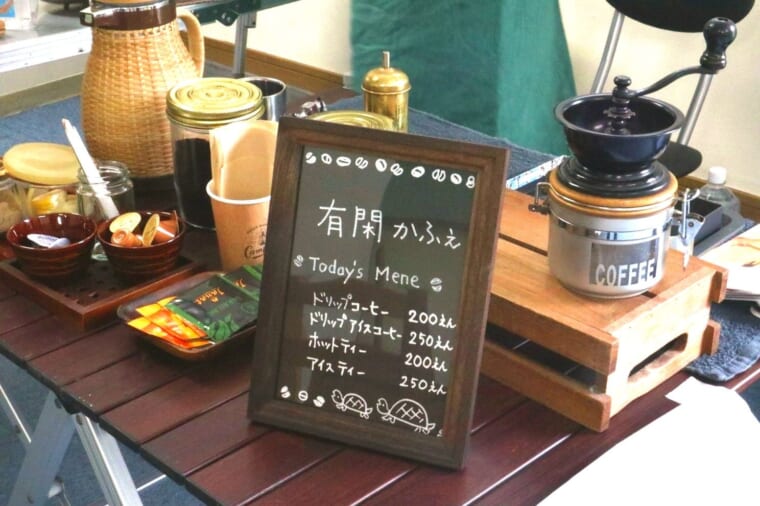 有閑かふぇ
Today's Mene
ドリップコーヒー 200えん
ドリップアイスコーヒー 250えん
ホットティー 200えん
アイスティー 250えん
COFFEE